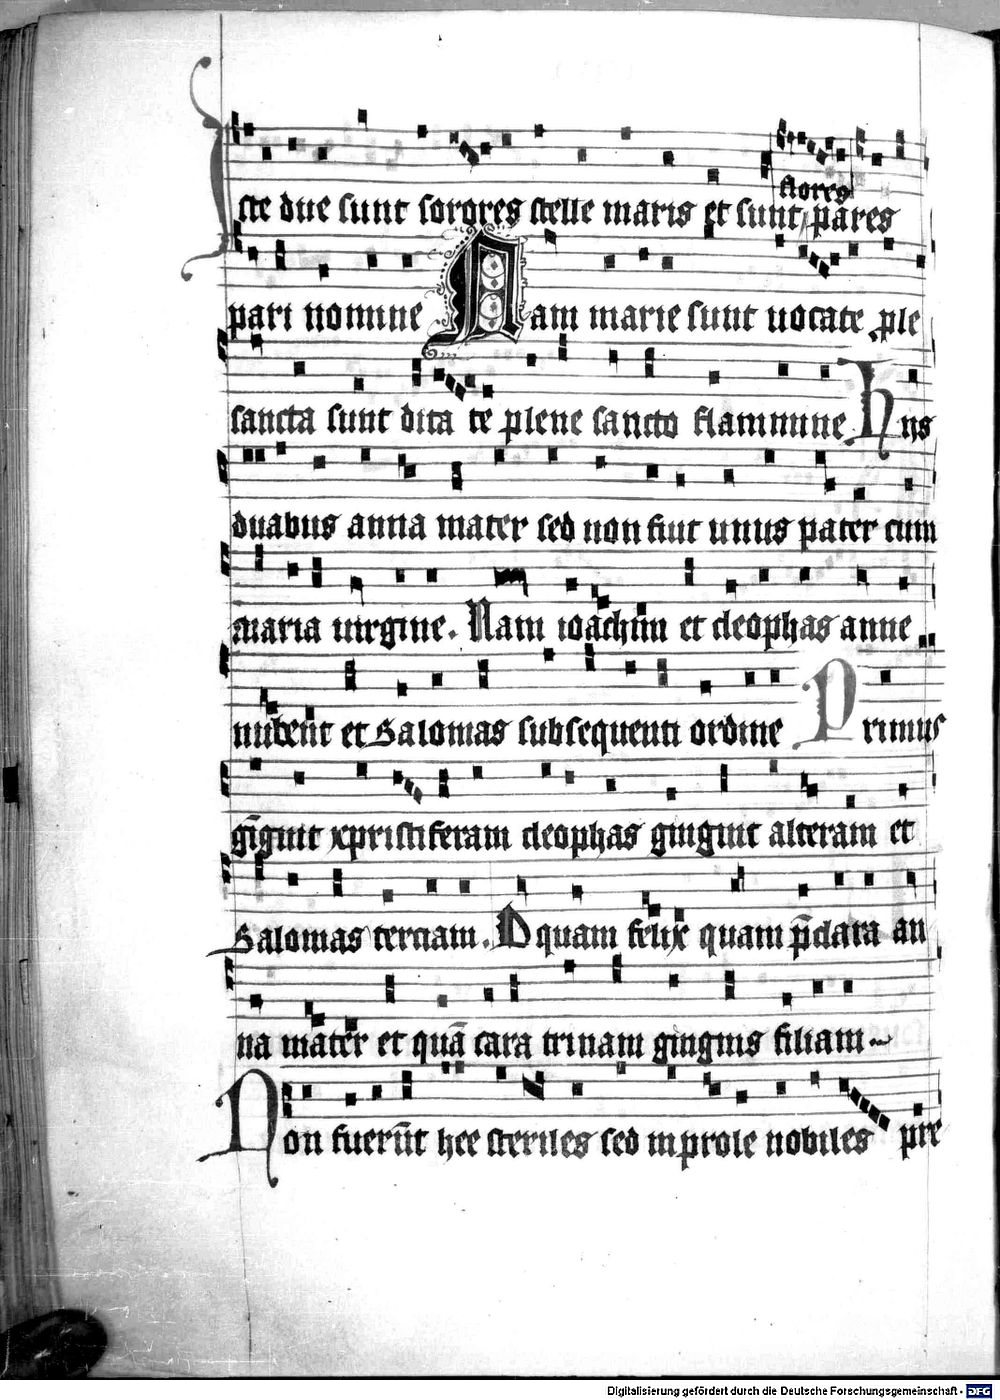 flores
Iste due sunt sorores stelle maris et sunt pares
pari nomine Nam marie sunt uocate ple
sancta sunt dita te plene sancto flammine hijs
duabus anna mater sed non fiut unus pater cum
maria uirgine. Nam ioachim et cleophas anne
nubent et Salomas subsequenti ordine Primus
gīgnit xpristiferam cleophas gingnit alteram et
Salomas terciam. O quam felix quam p̄clara an
na mater et quā cara trinam gingnis filiam
Non fuerūt hee steriles sed in prole nobiles pre
Digitalisierung gefördert durch die Deutsche Forschungsgemeinschaft - DFG